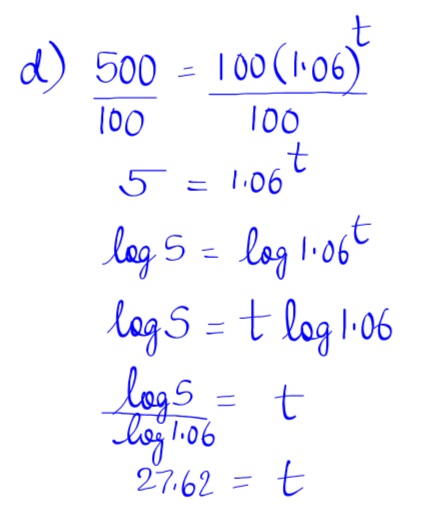 d) 500/100 = 100(1.06)^t/100
5 = 1.06^t
log 5 = log 1.06^t
log 5 = t log 1.06
log 5/log 1.06 = t
27.62 = t